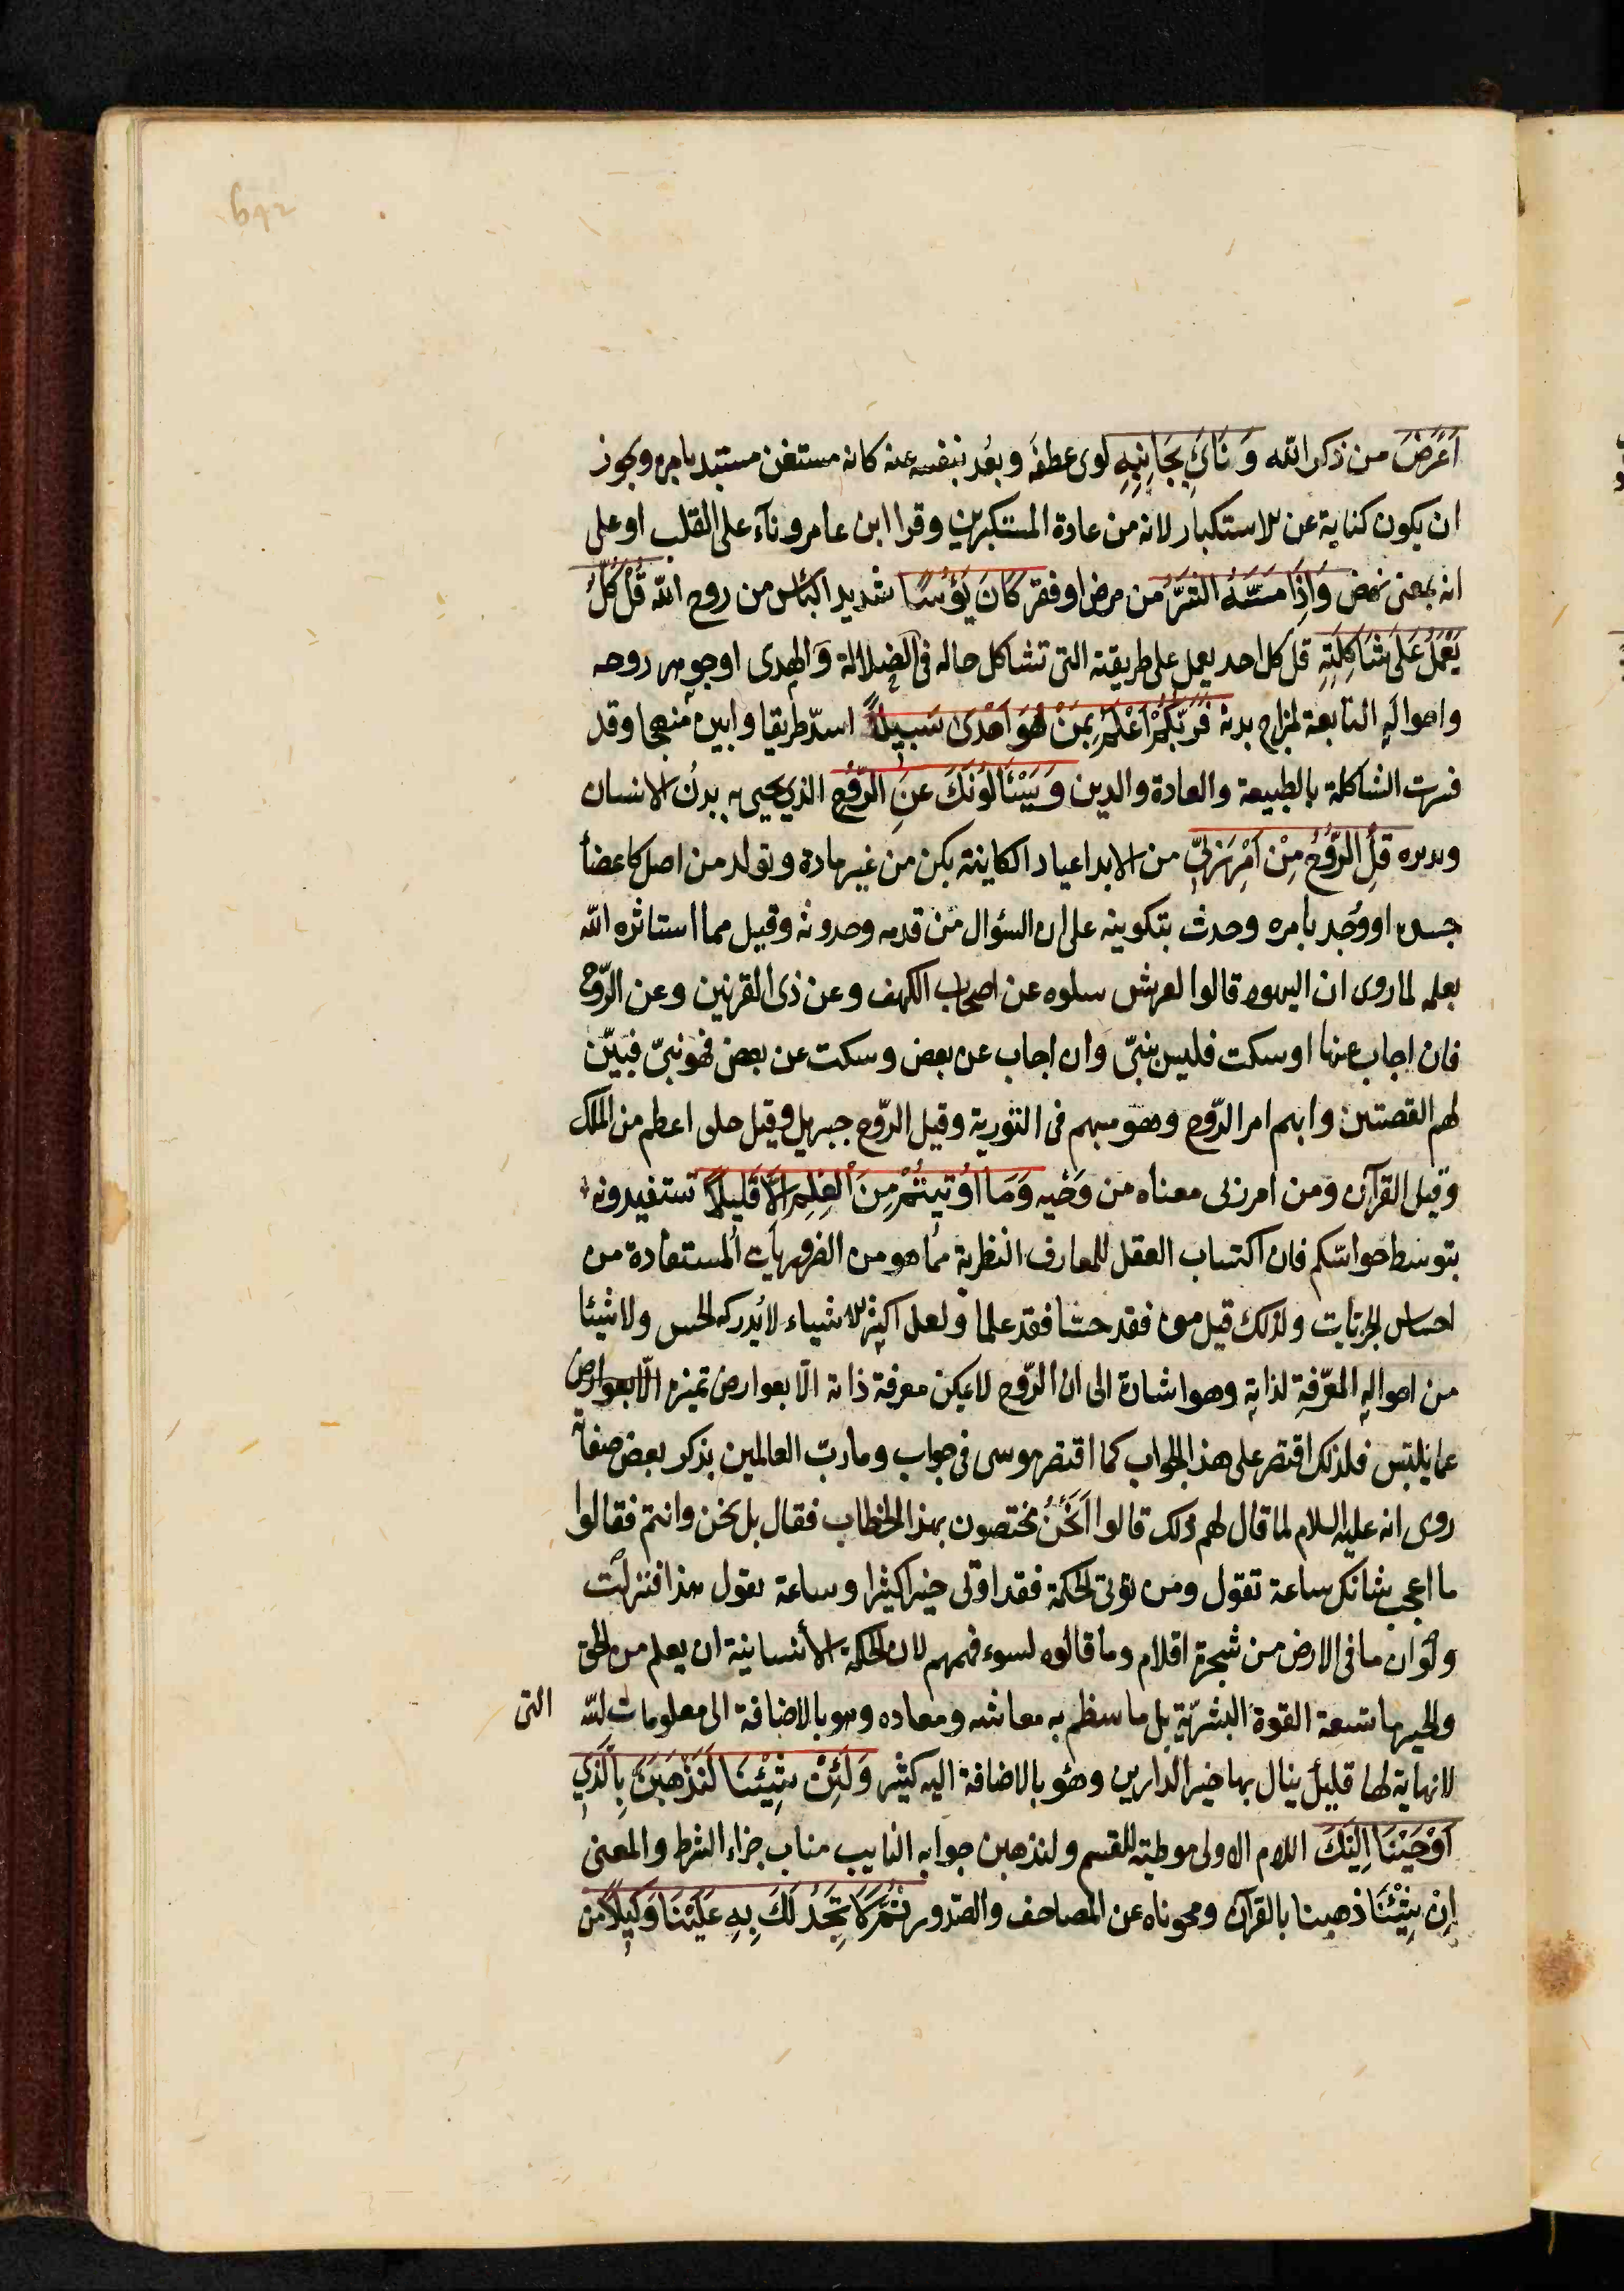 اَعْرَضَ من ذكر الله وَنَاىَ بِجَانِبِهِ لوى عطفه وبعُد بنفسه عنه كانه مستغن مستبد بامره ويجوز
ان يكون كناية عن الاستكبار لانه من عادة المستكبرين وقرا ابن عامر وناء على القلب او على
انه بمعنى نهض وَاِذَا مَسَّهُ الشَّرُّ من مرض او فقر كَانَ يَؤُسًا شديد الياس من روح الله قُلْ كُلٌّ
يَعْمَلُ عَلَى شَاكِلَتِهِ قل كل احد يعمل على طريقته التى تشاكل حاله فى الضلالة والهدى او جوهر روحه
واحواله التابعة لمزاج بدنه فَرَبُّكُمْ اَعْلَمُ بِمَنْ هُوَ اَهْدَى سَبِيلًا اسدّ طريقا وابين منهجا وقد
فسرت الشاكلة بالطبيعة والعادة والدين وَيَسْئَالُونَكَ عَنِ الرُّوحِ الذي يحيى به بدن الانسان
ويدبره قُلِ الرُّوحُ مِنْ اَمْرِ رَبِّى من الابداعيات الكاينة بكن من غير مادة وتولد من اصل كاعضأ
جسده او وُجد بامره وحدث بتكوينه على ان السؤال من قدمه وحدوثه وقيل مما استاثره الله
بعلمه لما روى ان اليهود قالوا لقريش سلوه عن اصحاب الكهف وعن ذى القرنين وعن الرّوح
فان اجاب عنها او سكت فليس بنبىّ وان اجاب عن بعض وسكت عن بعض فهو نبىّ فبيّن
لهم القصتين وابهم امر الرّوح وهو مبهم فى التورية وقيل الرّوح جبريل وقيل خلق اعظم من الملك
وقيل القرآن ومن امر ربى معناه من وَحْيه وَمَا اُوتِيتُمْ مِنَ الْعِلْمِ اِلَّا قَلِيلًا تستفيدونه
بتوسط حواسّكم فان اكتساب العقل للمعارف النظرية مما هو من الضروريات المستفادة من
احساس الجزئيات ولذلك قيل من فقد حسّا فقد علما ولعل اكثر الاشياء لا يُدركه الحس ولا شيئا
من احواله المعرّفة لذاته وهو اشارة الى ان الرّوح لا يمكن معرفة ذاته الّا بعوارض تميزه الّا بعوارض
عما يلتبس فلذلك اقتصر على هذا الجواب كما اقتصر موسى فى جواب وما ربّ العالمين بذكر بعض صفاته
روى انه عليه السلام لما قال لهم ذلك قالوا اَنَحْنُ مختصون بهذا الخطاب فقال بل نحن وانتم فقالوا
ما اعجب شانك ساعة تقول ومن يؤتى الحكمة فقد اوتى خيرا كثيرا وساعة تقول هذا فنزلت
ولو ان ما فى الارض من شجرة اقلام وما قالوه لسوء فهمهم لان الحكمة الانسانية ان يعلم من الحق
والخير ما تسعة القوة البشريّة بل ما ينتظم به معاشه ومعاده وهو بالاضافة الى معلومات الله التى
لا نهاية لها قليل ينال بها خير الدارين وهو بالاضافة اليه كثير وَلَئِنْ شِئْنَا لَنَذْهَبَنَّ بِالَّذِي
اَوْحَيْنَا اِلَيْكَ اللام الاولى موطئة للقسم ولنذهبن جوابه النايب مناب جزاء الشرط والمعنى
اِنْ شِئْنَا ذهبنا بالقرآن ومحوناه عن المصاحف والصّدور ثُمَّ لَا تَجِدُ لَكَ بِهِ عَلَيْنَا وَكِيلًا من